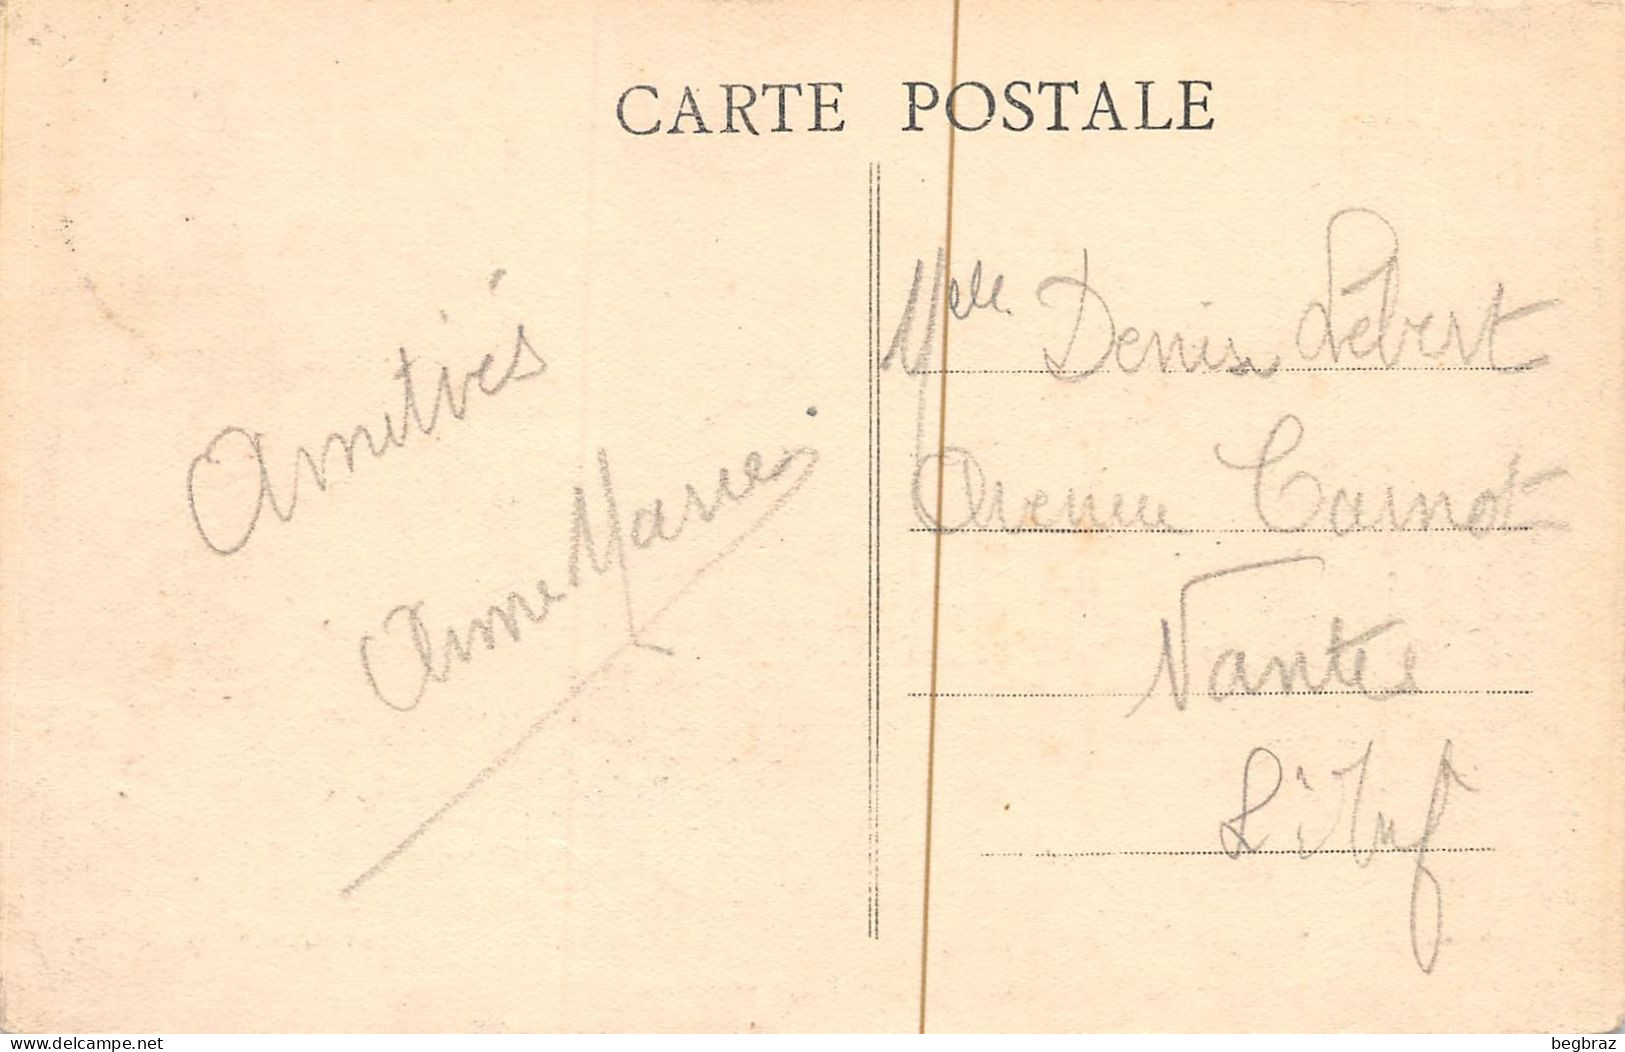 CARTE POSTALE
Amitiés
Anne Marie
Melle Denise Lebert
Avenue Carnot
Nantes
L. Inf
delcampe.net
begbraz